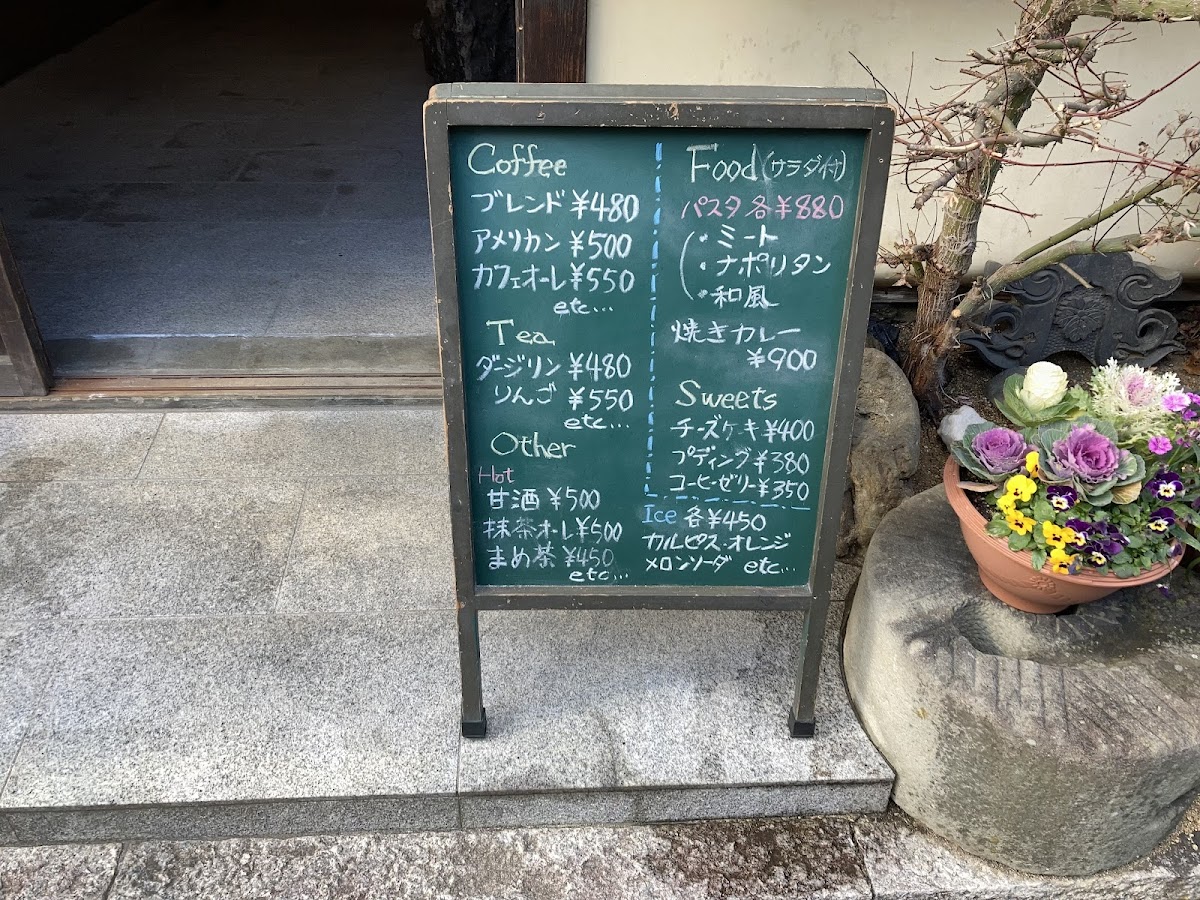 Coffee
ブレンド ¥480
アメリカン ¥500
カフェオーレ ¥550
etc...
Tea
ダージリン ¥480
りんご ¥550
etc...
Other
Hot
甘酒 ¥500
抹茶オーレ ¥500
まめ茶 ¥450
etc...
Food (サラダ付)
パスタ 各¥880
・ミート
・ナポリタン
・和風
焼きカレー
¥900
Sweets
チーズケーキ ¥400
プディング ¥380
コーヒーゼリー ¥350
Ice 各¥450
カルピス・オレンジ
メロンソーダ etc...